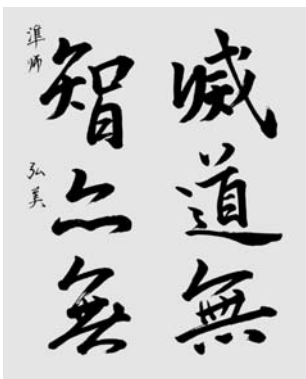 滅道無
智亦無
準師 弘美